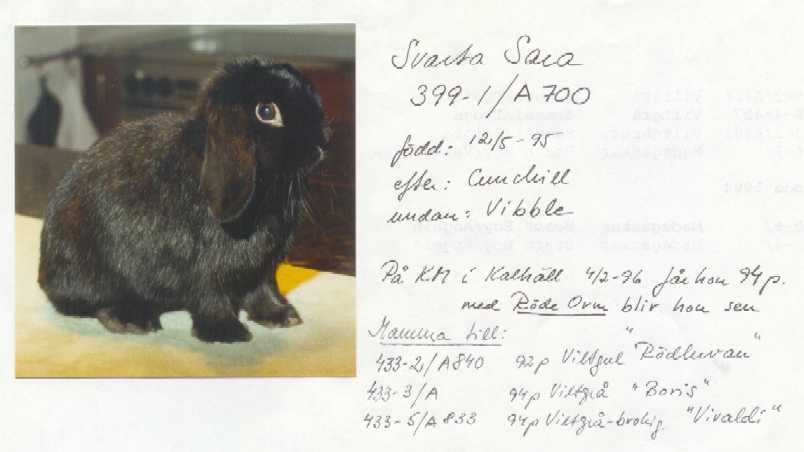 Svarta Sara
399-1/A 700
född: 12/5-95
efter: Cunchill
undan: Vibble
På KM i Kalhäll 4/2-96 får hon 94 p.
med Röde Orm blir hon sen
Mamma till:
433-2/A 840 92 p Viltgul "Rödluvan"
433-3/A 94p Viltgrå "Boris"
433-5/A 833 94p Viltgrå-brokig "Vivaldi"